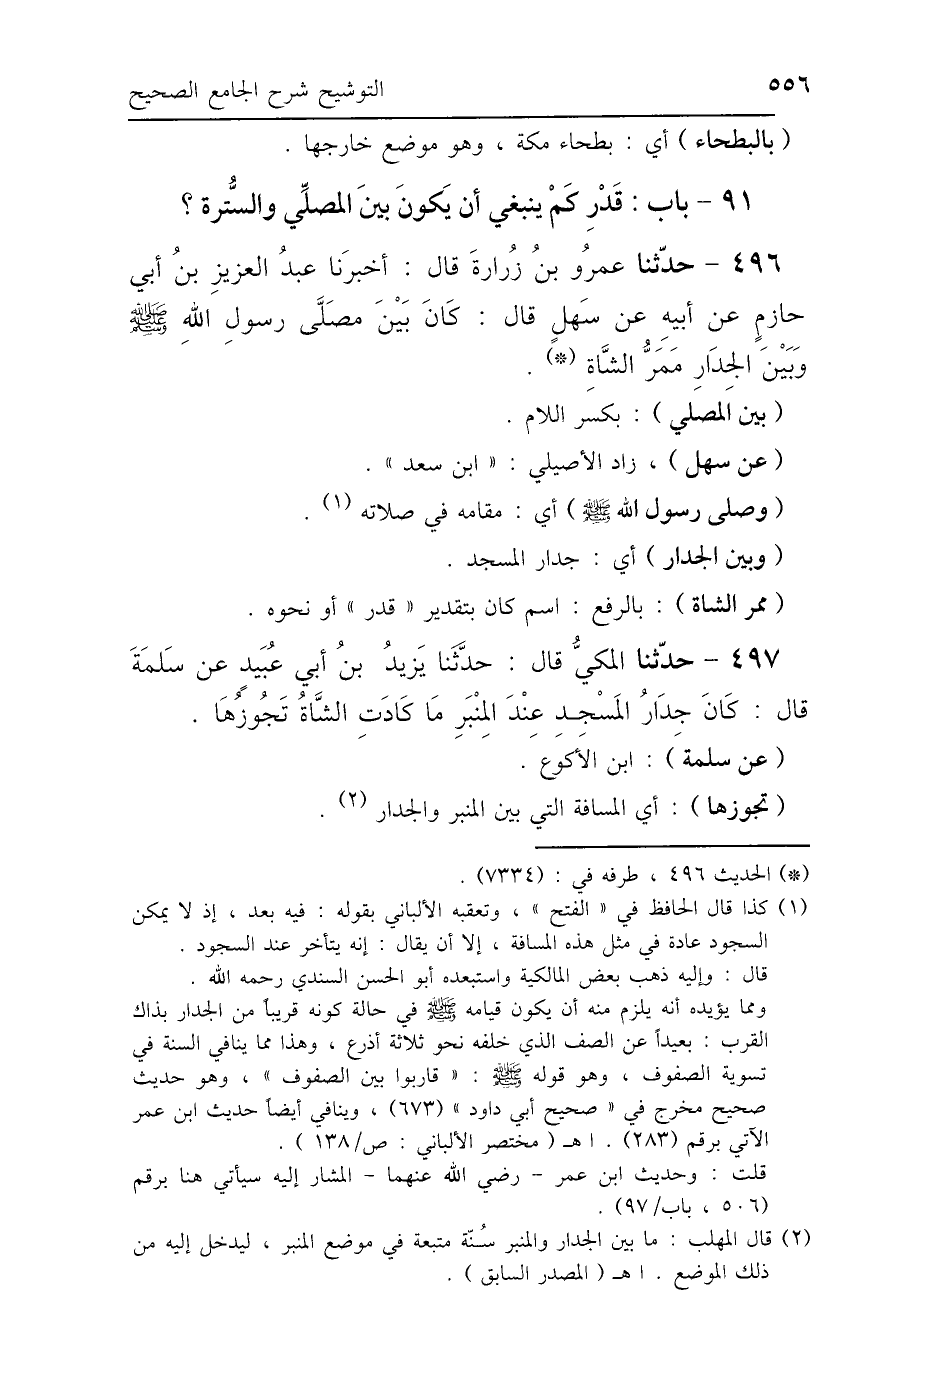 ٥٥٦
التوشيح شرح الجامع الصحيح
( بالبطحاء ) أي : بطحاء مكة ، وهو موضع خارجها .
٩١ - باب : قَدْرِ كَمْ ينبغي أن يَكونَ بينَ المصلِّي والسُّترة ؟
٤٩٦ - حدّثنا عمرُو بنُ زُرارةَ قال : أخبرَنا عبدُ العزيزِ بنُ أبي
حازمٍ عن أبيهِ عن سَهلٍ قال : كَانَ بَيْنَ مصَلَّى رسولِ اللهِ ﷺ
وَبَيْنَ الجِدَارِ مَمَرُّ الشَّاةِ (*) .
( بين المصلي ) : بكسر اللام .
( عن سهل ) ، زاد الأصيلي : « ابن سعد » .
( وصلى رسول الله ﷺ ) أي : مقامه في صلاته (١) .
( وبين الجدار ) أي : جدار المسجد .
( ممر الشاة ) : بالرفع : اسم كان بتقدير « قدر » أو نحوه .
٤٩٧ - حدّثنا المكيُّ قال : حدَّثَنا يَزيدُ بنُ أبي عُبَيدٍ عن سَلمَةَ
قال : كَانَ جِدَارُ المَسْجِدِ عِنْدَ المِنْبَرِ مَا كَادَتِ الشَّاةُ تَجُوزُهَا .
( عن سلمة ) : ابن الأكوع .
( تجوزها ) : أي المسافة التي بين المنبر والجدار (٢) .
(*) الحديث ٤٩٦ ، طرفه في : (٧٣٣٤) .
(١) كذا قال الحافظ في « الفتح » ، وتعقبه الألباني بقوله : فيه بعد ، إذ لا يمكن
السجود عادة في مثل هذه المسافة ، إلا أن يقال : إنه يتأخر عند السجود .
قال : وإليه ذهب بعض المالكية واستبعده أبو الحسن السندي رحمه الله .
ومما يؤيده أنه يلزم منه أن يكون قيامه ﷺ في حالة كونه قريباً من الجدار بذاك
القرب : بعيداً عن الصف الذي خلفه نحو ثلاثة أذرع ، وهذا مما ينافي السنة في
تسوية الصفوف ، وهو قوله ﷺ : « قاربوا بين الصفوف » ، وهو حديث
صحيح مخرج في « صحيح أبي داود » (٦٧٣) ، وينافي أيضاً حديث ابن عمر
الآتي برقم (٢٨٣) . ا هـ ( مختصر الألباني : ص/١٣٨ ) .
قلت : وحديث ابن عمر - رضي الله عنهما - المشار إليه سيأتي هنا برقم
(٥٠٦ ، باب/٩٧) .
(٢) قال المهلب : ما بين الجدار والمنبر سُنّة متبعة في موضع المنبر ، ليدخل إليه من
ذلك الموضع . ا هـ ( المصدر السابق ) .